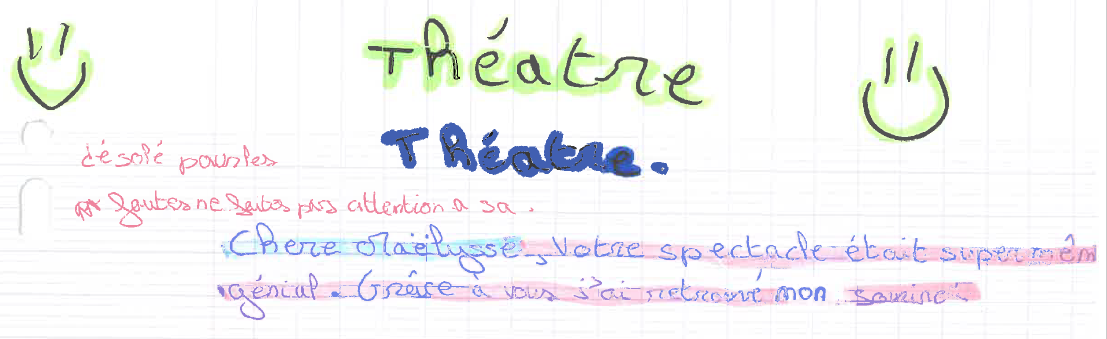 Théatre
Théatre.
désolé pour les
fautes ne faites pas attention a sa.
Chere Maëlysse, Votre spectacle était super mêm
génial. Grâce à vous j'ai retrouvé mon sourire.